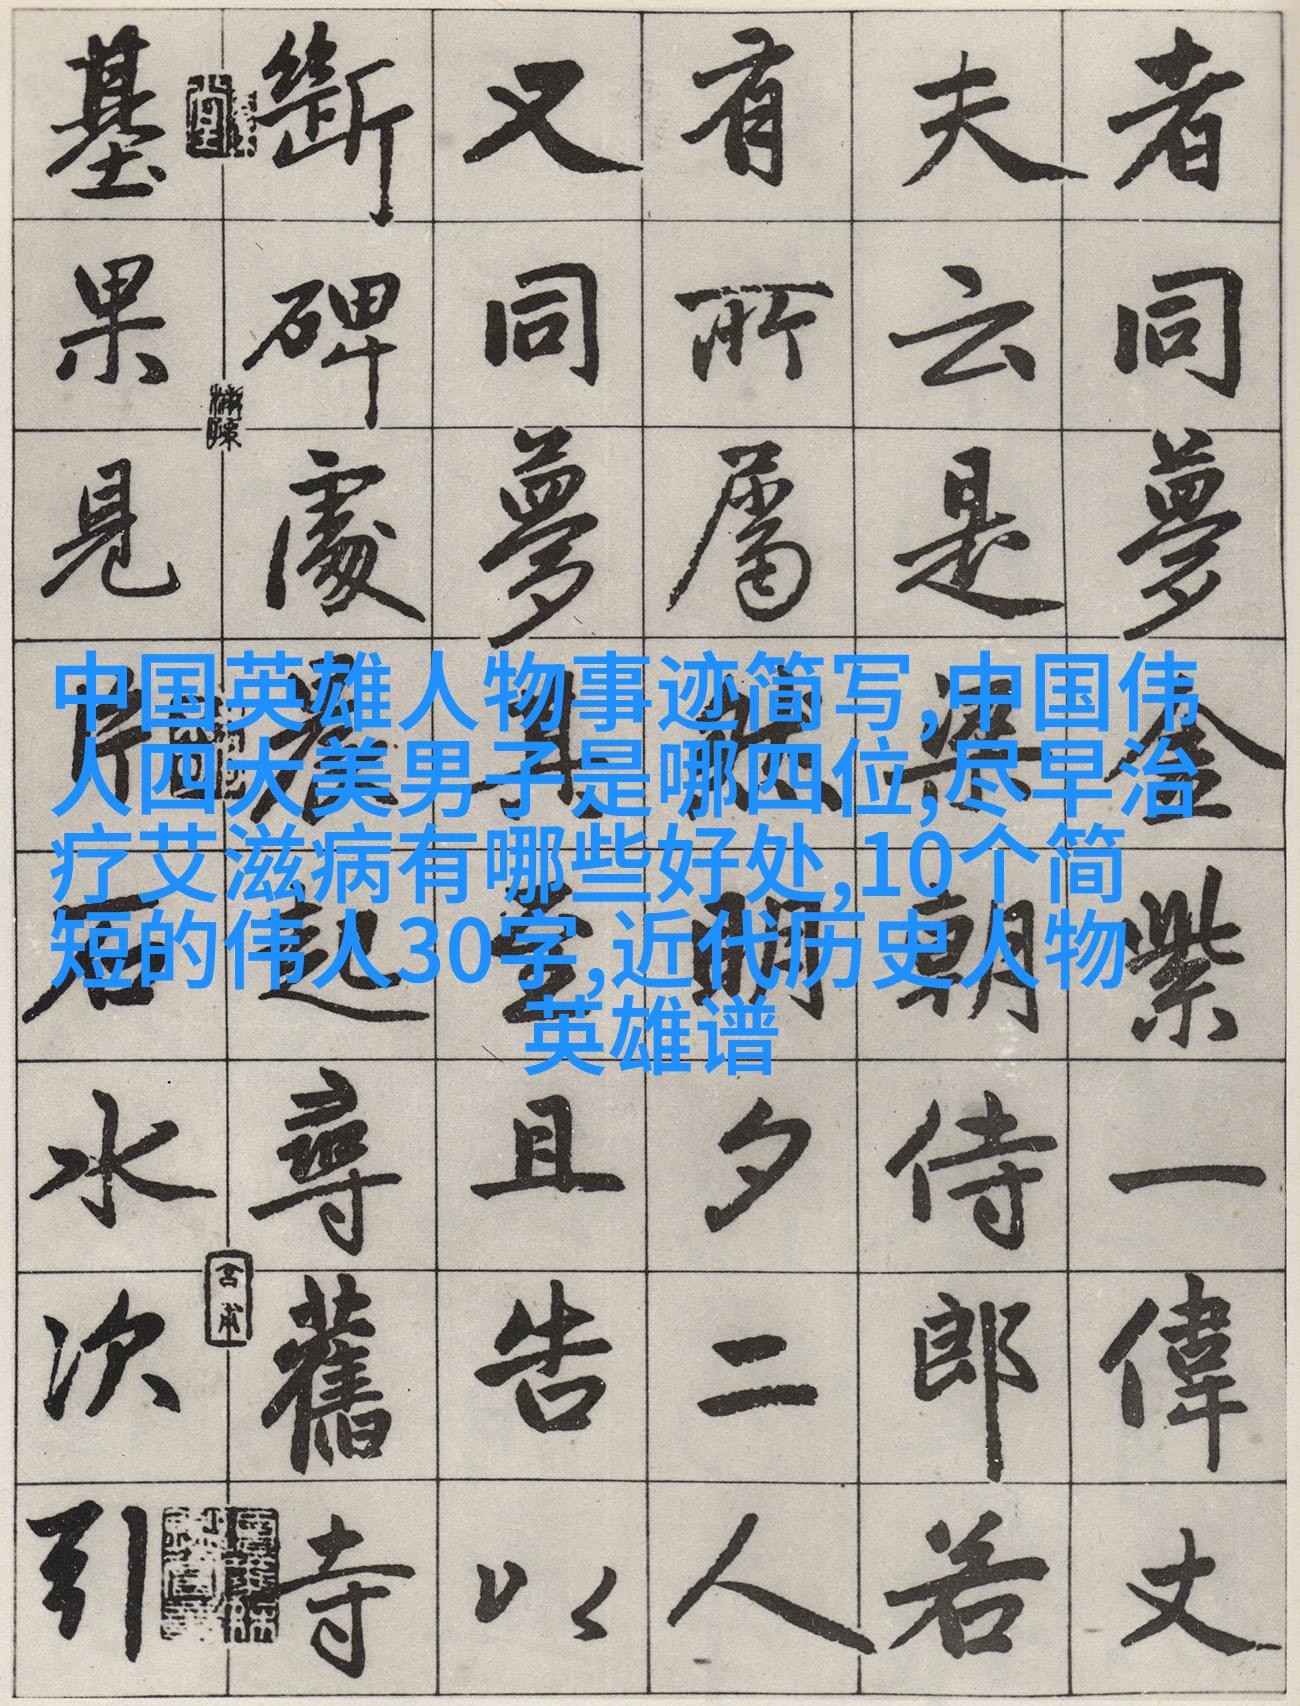 者同夢金紫一偉丈
夫云是梁朝侍郎若
有所屬明夕二人
又同夢且告以
斷碑處晨起尋舊寺
基果見片石水次引
中国英雄人物事迹简写,中国伟
人四大美男子是哪四位,尽早治
疗艾滋病有哪些好处,10个简
短的伟人30字,近代历史人物
英雄谱